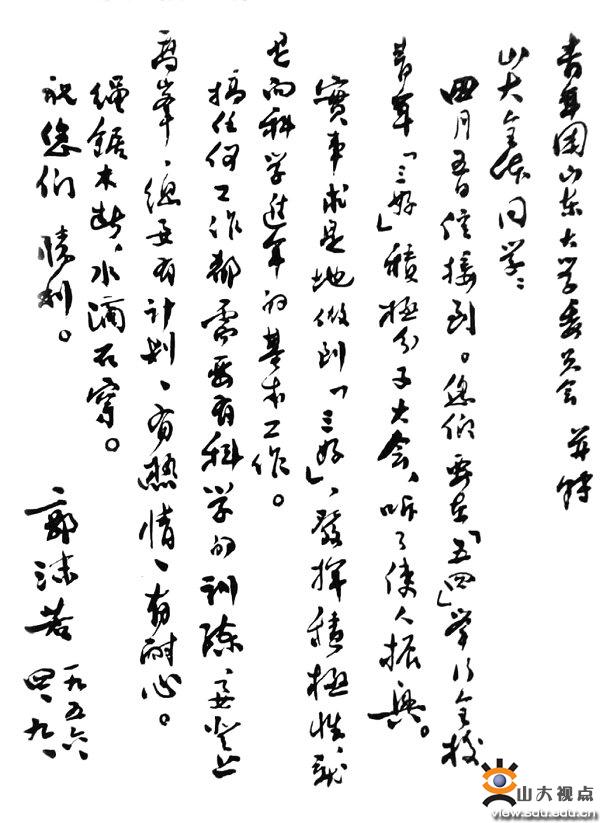 青年团山东大学委员会 并转
山大全体同学：
四月五日信接到。您们要在「五四」举行全校
青年「三好」積极分子大会，听了使人振興。
實事求是地做到「三好」，發揮積極性，就
是向科学進军的基本工作。
搞任何工作都需要有科学的訓练，要登上
高峯，總要有计划、有热情、有耐心。
绳锯木断，水滴石穿。
祝您们 勝利。
郭沫若 一九五六、
四、九、
山大视点
view.sdu.edu.cn